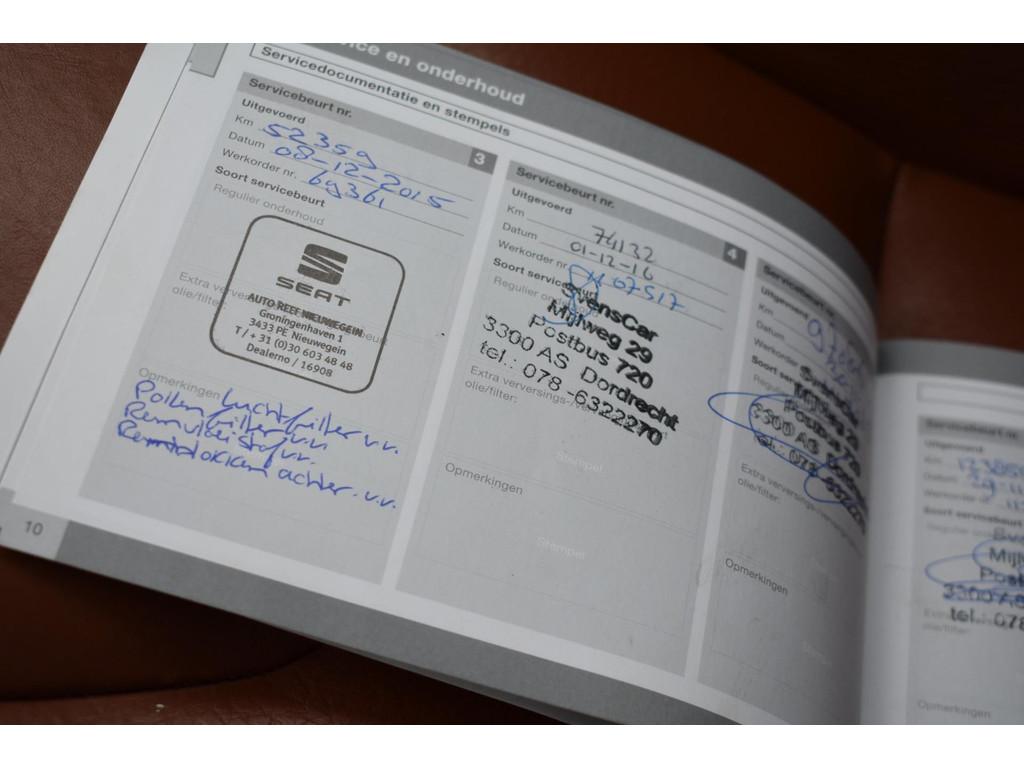 vice en onderhoud
Servicedocumentatie en stempels
Servicebeurt nr. 3
Uitgevoerd
Km 52359
Datum 08-12-2015
Werkorder nr. 69361
Soort servicebeurt
Regulier onderhoud
SEAT
AUTO REEF NIEUWEGEIN
Groningenhaven 1
3433 PE Nieuwegein
T / + 31 (0)30 603 48 48
Dealerno / 16908
Extra verversings-
olie/filter:
Opmerkingen
Luchtfilter v.v.
Pollenfilter v.v.
Remvloeistof v.v.
Remblokken achter v.v.
10
Servicebeurt nr. 4
Uitgevoerd
Km 74132
Datum 01-12-16
Werkorder nr.
Soort servicebeurt
Regulier
SvensCar
Mijlweg 29
Postbus 720
3300 AS Dordrecht
tel.: 078 -6322270
Extra verversings-
olie/filter:
Stempel
Opmerkingen
Stempel
Servicebeurt nr.
Uitgevoerd
Km
Datum
Werkorder
Soort
Regulier
Mijlweg 29
Postbus 720
3300 AS
tel.: 078
Extra verversings-
olie/filter:
Stempel
Opmerkingen
Stempel
Servicebeurt nr.
Uitgevoerd
Km
Datum
Werkorder nr.
Soort servicebeurt
Regulier
Mijl
Post
3300 AS
tel.: 078
olie/filter:
Opmerkingen